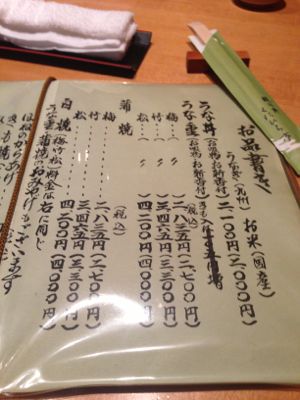 お品書き
うなぎ(九州) お米(国産)
うな丼(お吸物お新香付) 二一〇〇円(二、〇〇〇円)
うな重(お吸物お新香付) (税込)
梅 〃 二八三五円(二、七〇〇円)
竹 〃 三四六五円(三、三〇〇円)
松 〃 四二〇〇円(四、〇〇〇円)
蒲焼 (税込)
梅 二八三五円(二、七〇〇円)
竹 三四六五円(三、三〇〇円)
松 四二〇〇円(四、〇〇〇円)
白焼 梅竹松料金は右に同じ
うな重蒲焼おみやげもございます
ほねからあげ
きも焼